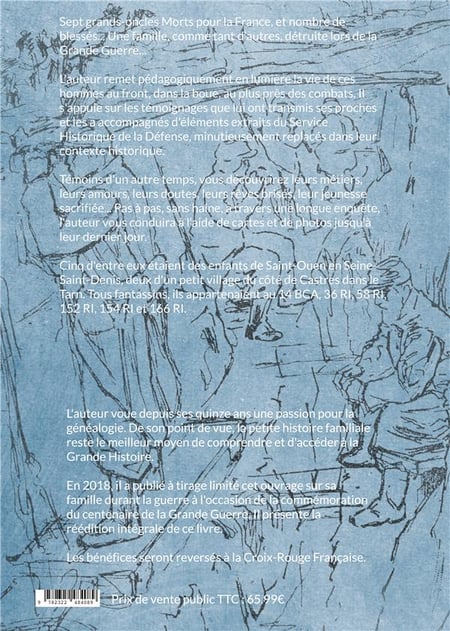 Sept grands-oncles Morts pour la France, et nombre de
blessés... Une famille, comme tant d'autres, détruite lors de la
Grande Guerre...
L'auteur remet pédagogiquement en lumière la vie de ces
hommes au front, dans la boue, au plus près des combats. Il
s'appuie sur les témoignages que lui ont transmis ses proches
et les a accompagnés d'éléments extraits du Service
Historique de la Défense, minutieusement replacés dans leur
contexte historique.
Témoins d'un autre temps, vous découvrirez leurs métiers,
leurs amours, leurs doutes, leurs rêves brisés, leur jeunesse
sacrifiée... Pas à pas, sans haine, à travers une longue enquête,
l'auteur vous conduira à l'aide de cartes et de photos jusqu'à
leur dernier jour.
Cinq d'entre eux étaient des enfants de Saint-Ouen en Seine-
Saint-Denis, deux d'un petit village du côté de Castres dans le
Tarn. Tous fantassins, ils appartenaient au 14 BCA, 36 RI, 58 RI,
152 RI, 154 RI et 166 RI.
L'auteur voue depuis ses quinze ans une passion pour la
généalogie. De son point de vue, la petite histoire familiale
reste le meilleur moyen de comprendre et d'accéder à la
Grande Histoire.
En 2018, il a publié à tirage limité cet ouvrage sur sa
famille durant la guerre à l'occasion de la commémoration
du centenaire de la Grande Guerre. Il présente la
réédition intégrale de ce livre.
Les bénéfices seront reversés à la Croix-Rouge Française.
Prix de vente public TTC : 65,99€